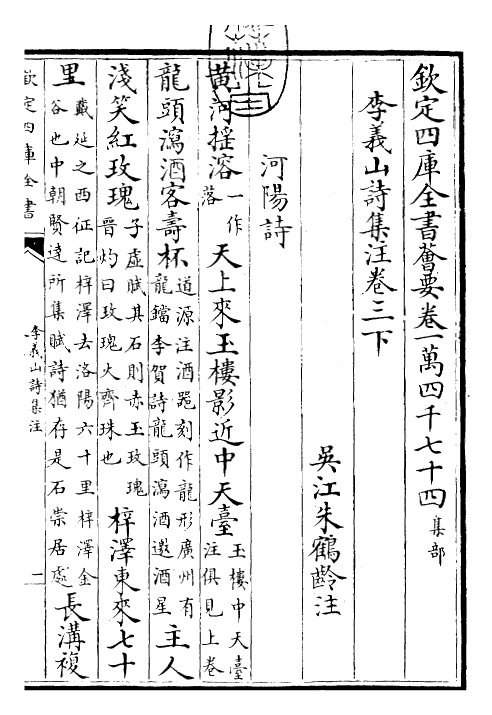 欽定四庫全書薈要卷一萬四千七十四 集部
李義山詩集注卷三下
吳江朱鶴齡注
河陽詩
黃河搖溶一作落天上來玉樓影近中天臺玉樓中天臺注俱見上卷
龍頭瀉酒客壽杯道源注酒器刻作龍形廣州有龍鐺李賀詩龍頭瀉酒邀酒星主人
淺笑紅玫瑰子虛賦其石則赤玉玫瑰晉灼曰玫瑰火齊珠也梓澤東來七十
里戴延之西征記梓澤去洛陽六十里梓澤金谷也中朝賢達所集賦詩猶存是石崇居處長溝複
欽定四庫全書
李義山詩集注
一